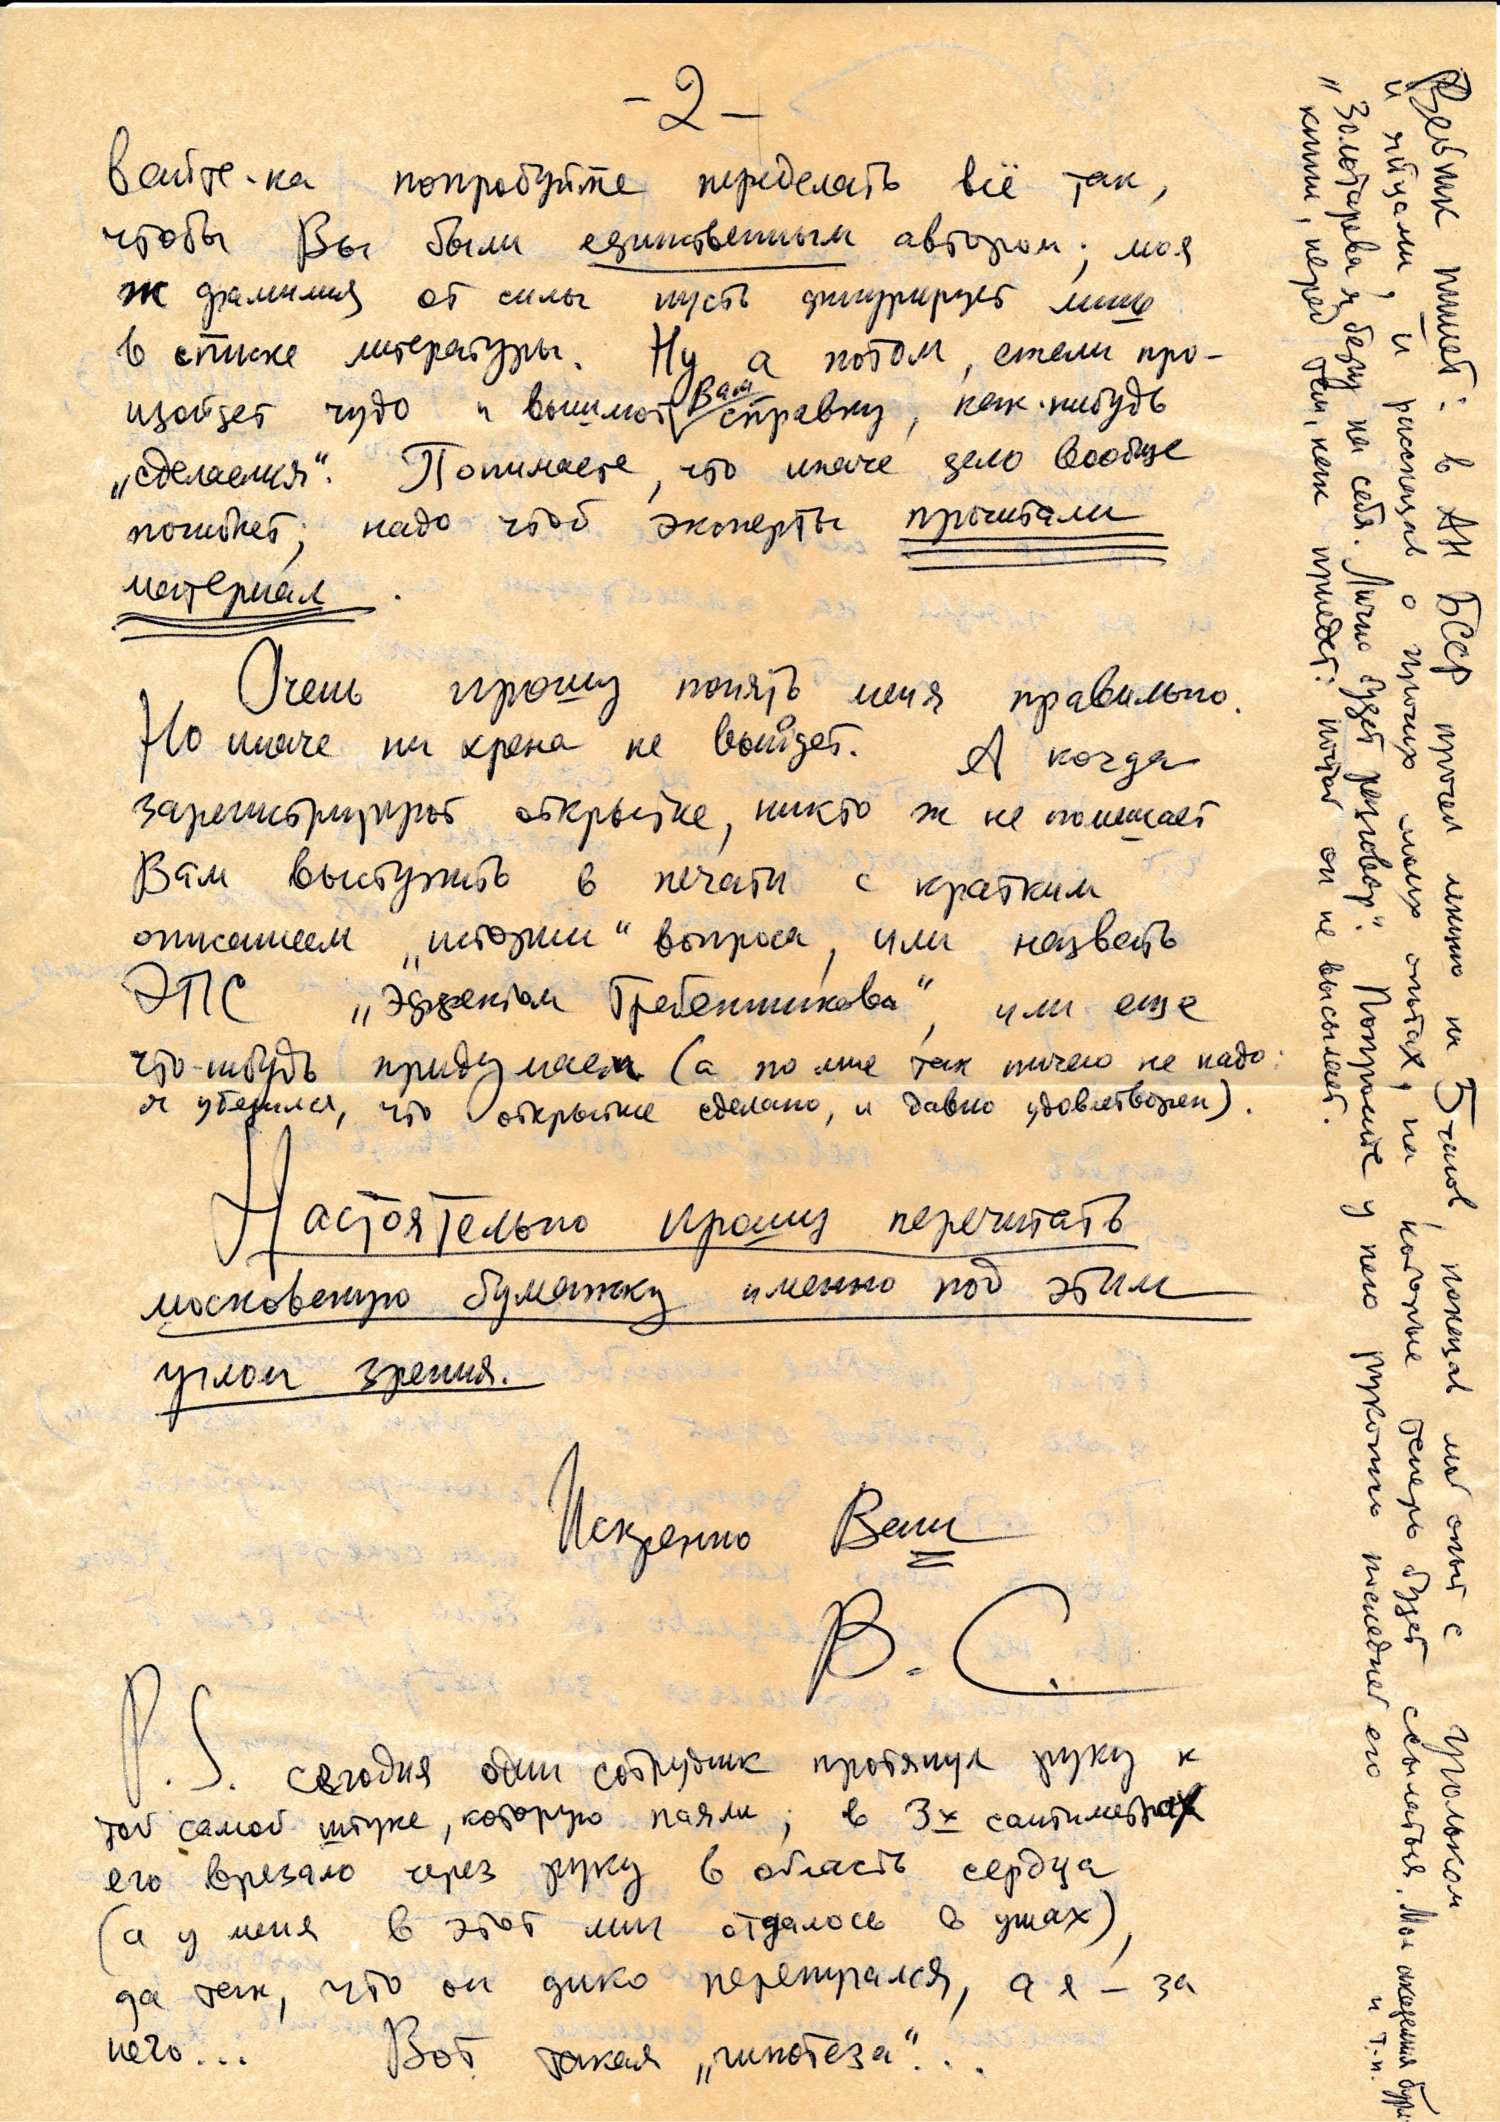 - 2 -
вайте-ка попробуйте переделать всё так,
чтобы Вы были единственным автором; моя
ж фамилия от силы пусть фигурирует лишь
в списке литературы. Ну а потом, ежели про-
изойдет чудо и вышлют Вам справку, как-нибудь
„сделаемся“. Понимаете, что иначе дело вообще
погибнет; надо чтоб эксперты прочитали
материал.
Очень прошу понять меня правильно.
Но иначе ни хрена не выйдет. А когда
зарегистрируют открытие, никто ж не помешает
Вам выступить в печати с кратким
описанием „истории“ вопроса, или назвать
ЭПС „Эффектом Гребенникова“, или еще
что-нибудь придумаем (а по мне так ничего не надо:
я убедился, что открытие сделано, и давно удовлетворен).
Настоятельно прошу перечитать
московскую бумажку именно под этим
углом зрения.
Искренно Ваш
В. С.
P.S. Сегодня один сотрудник протянул руку к
той самой штуке, которую паяли; в 3х сантиметрах
его врезало через руку в область сердца
(а у меня в этот миг отдалось в ушах),
да так, что он дико перепугался, а я – за
него... Вот такая „гипотеза“...
Вейник пишет: в АН БССР прочел лекцию на 5 часов, показав мой опыт с угольком
и яйцами, и рассказав о прочих моих опытах, на которые теперь будет ссылаться. Мол академия
и т.п.
„Золотарева я беру на себя. Лично будет разговор“. Попросите у него рукопись последней его
книги, перед тем, как приедет: почтой он не высылает.